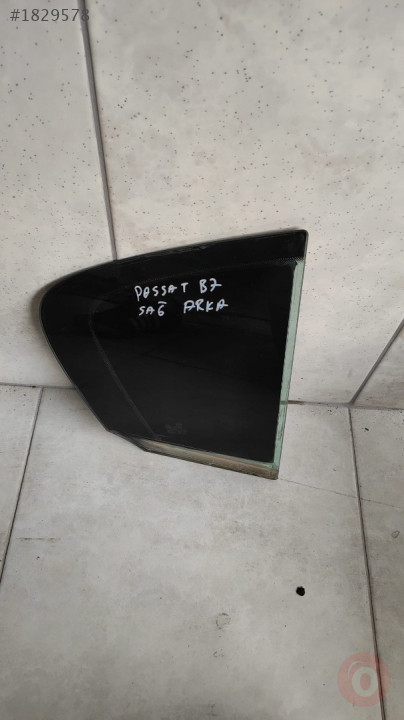 #1829578
PASSAT B7
SAĞ ARKA